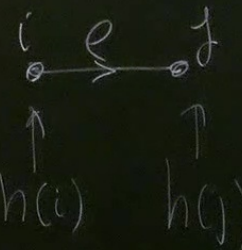 i e j
h(i) h(j)